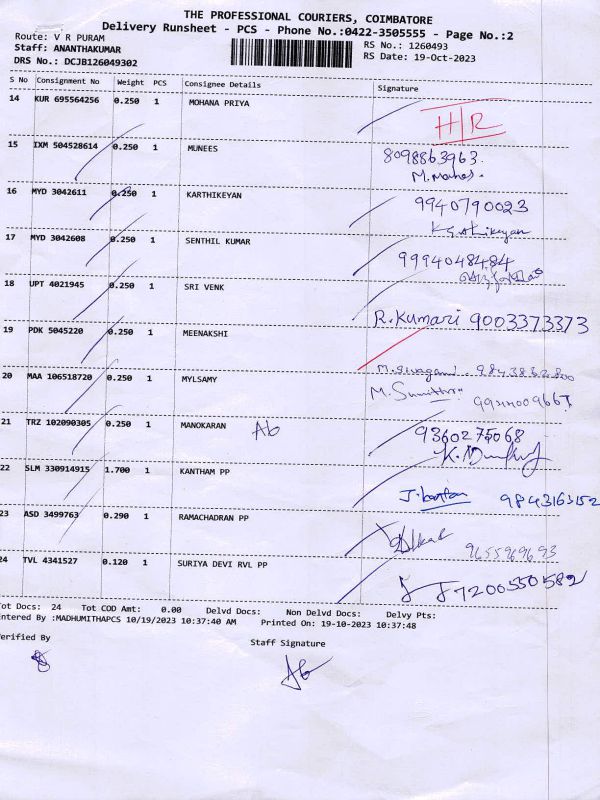 THE PROFESSIONAL COURIERS, COIMBATORE
Delivery Runsheet - PCS - Phone No.:0422-3505555 - Page No.:2
Route: V R PURAM
RS No.: 1260493
Staff: ANANTHAKUMAR
RS Date: 19-Oct-2023
DRS No.: DCJB126049302
S No Consignment No Weight PCS Consignee Details Signature
14 KUR 695564256 0.250 1 MOHANA PRIYA H/R
15 IXM 504528614 0.250 1 MUNEES 8098863963.
16 MYD 3042611 0.250 1 KARTHIKEYAN 9940790023
17 MYD 3042608 0.250 1 SENTHIL KUMAR 9994048484
18 UPT 4021945 0.250 1 SRI VENK R.Kumari 9003373373
19 PDK 5045220 0.250 1 MEENAKSHI
20 MAA 106518720 0.250 1 MYLSAMY
21 TRZ 102090305 0.250 1 MANOKARAN Ab 9360275068
22 SLM 330914915 1.700 1 KANTHAM PP 9843163152
23 ASD 3499763 0.290 1 RAMACHADRAN PP 9655969693
24 TVL 4341527 0.120 1 SURIYA DEVI RVL PP 7200550582
Tot Docs: 24 Tot COD Amt: 0.00 Delvd Docs: Non Delvd Docs: Delvy Pts:
Entered By :MADHUMITHAPCS 10/19/2023 10:37:40 AM Printed On: 19-10-2023 10:37:48
Verified By
Staff Signature